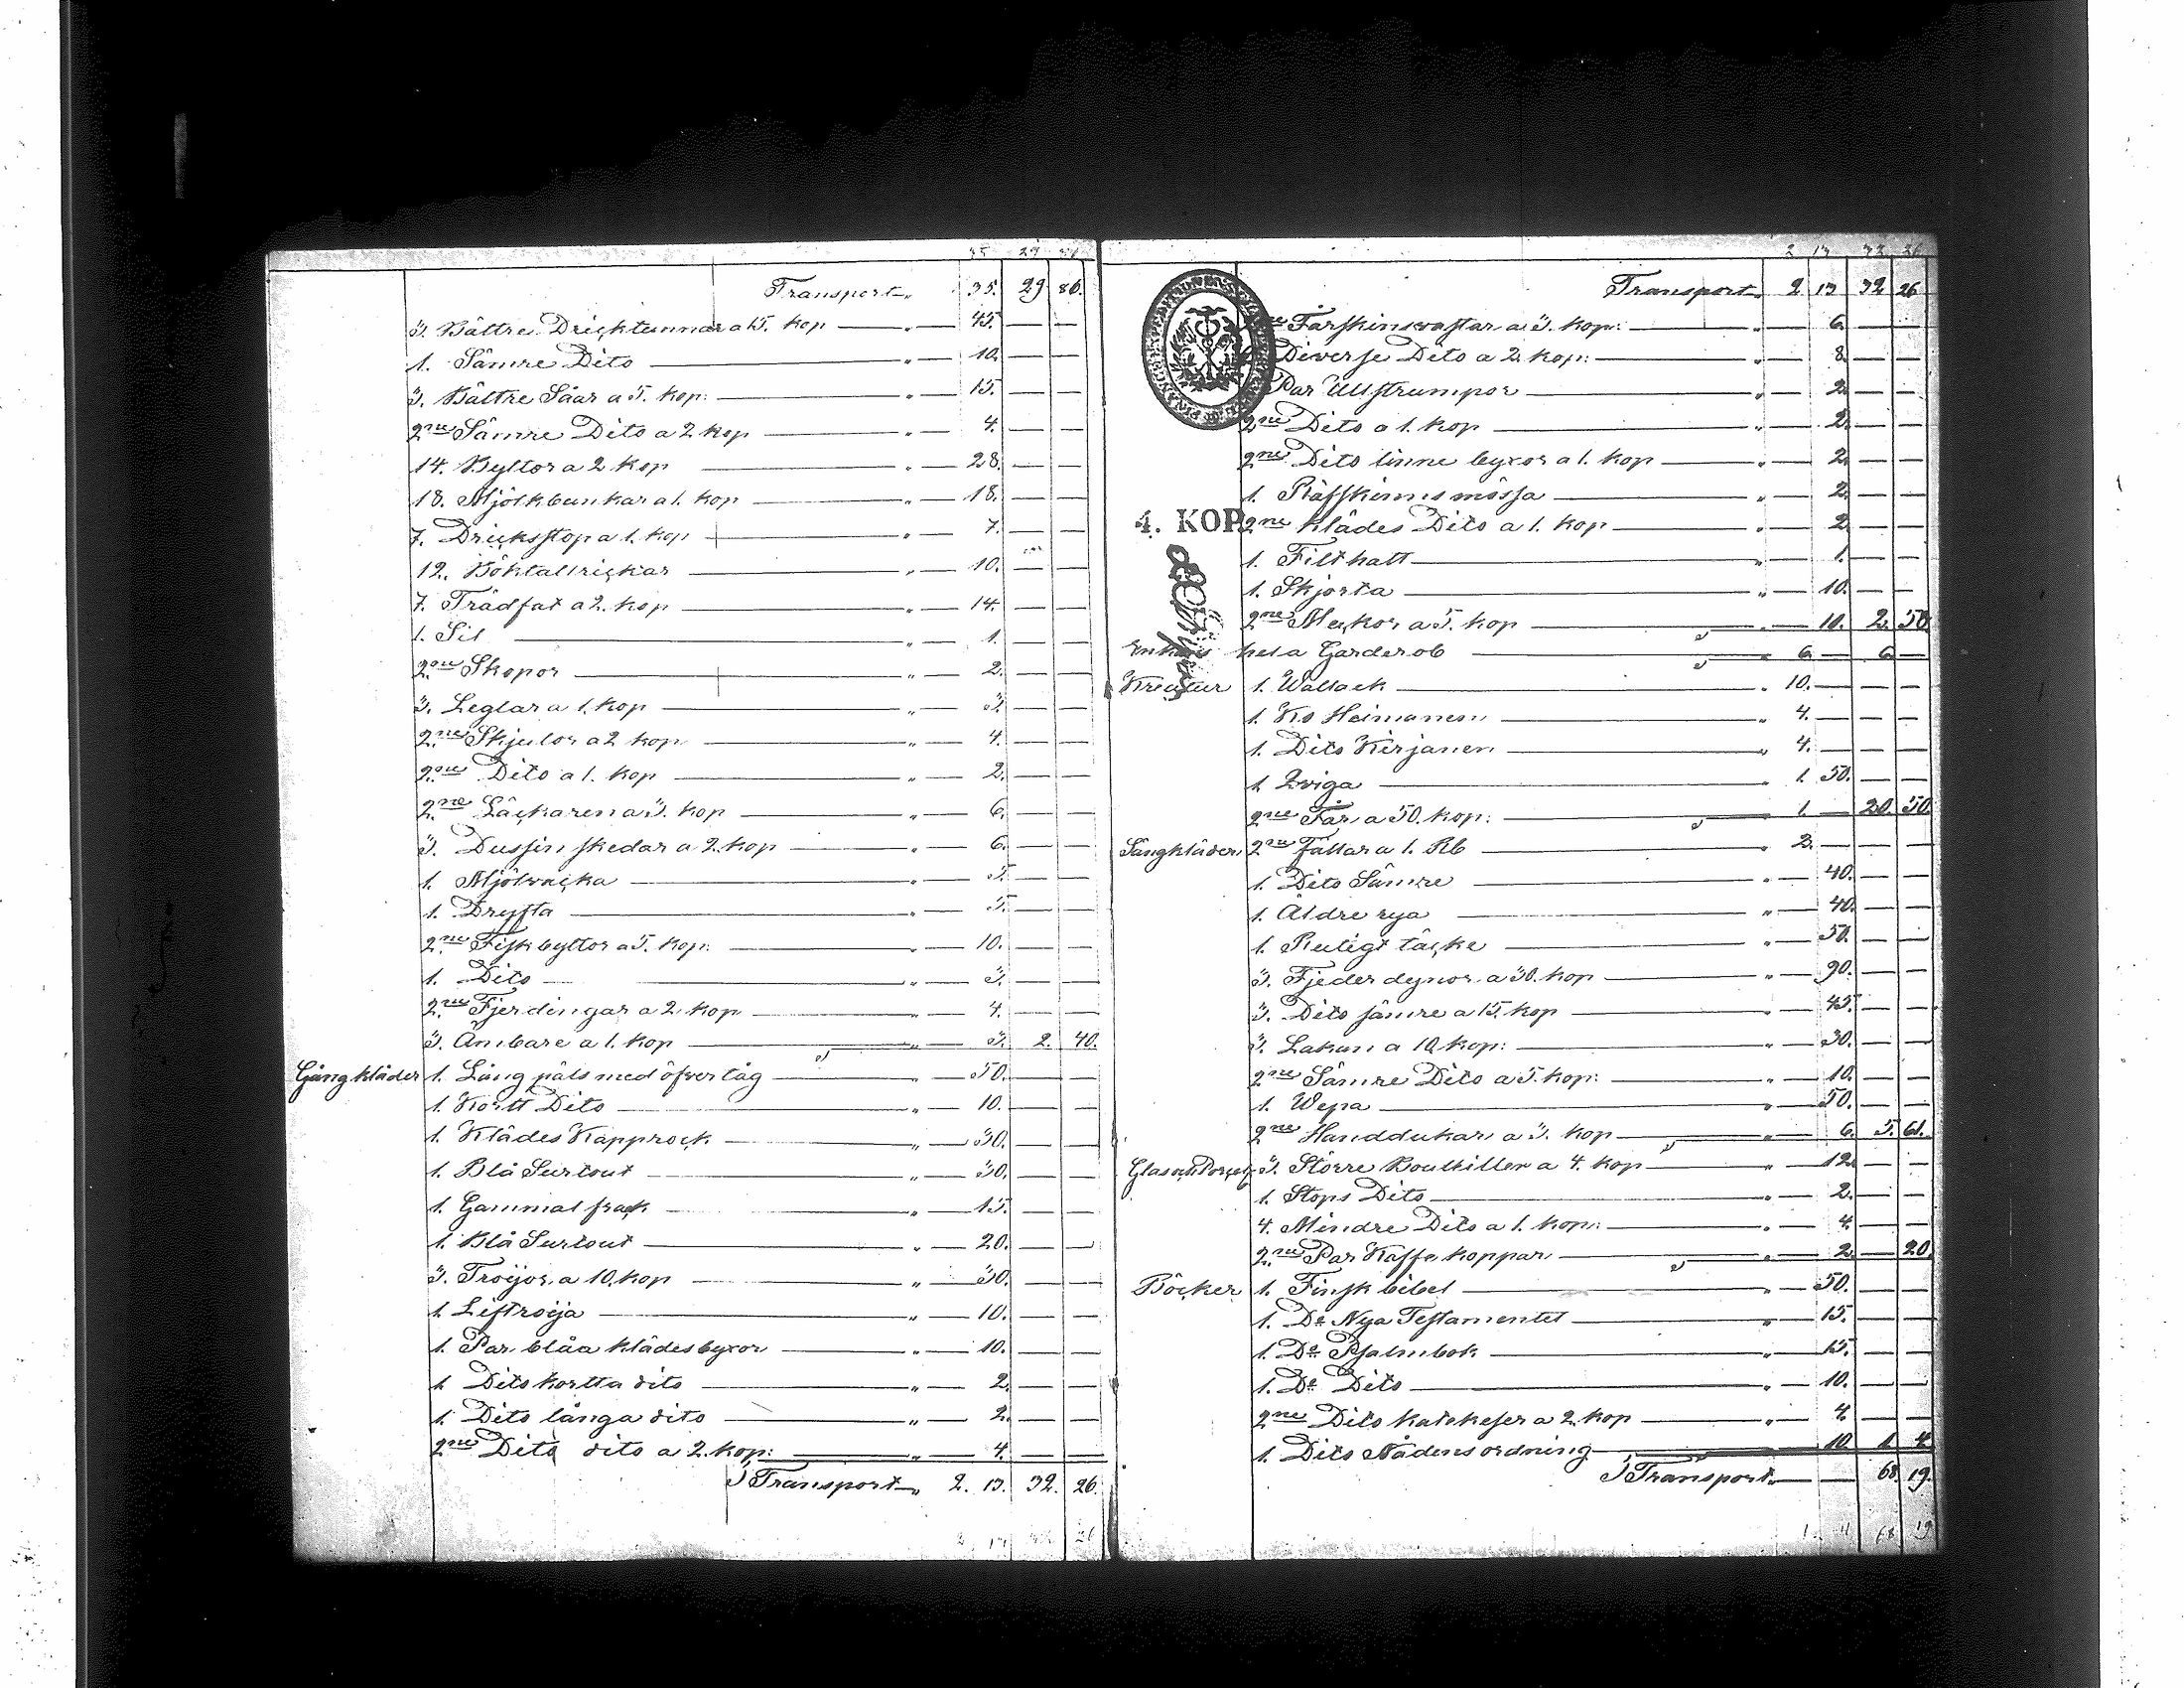 35 29 86
Transport„ 35. 29 86.
3. Bättre Dricktunnor a 15. kop — „ — 45. — —
1. Sämre Dito — „ — 10. — —
3. Bättre Såar a 5. kop: — „ — 15. — —
2ne Sämre Dito a 2 kop — „ — 4. — —
14. Byttor a 2 kop — „ — 28. — —
18. Mjölkbunkar a 1. kop — „ — 18. — —
7. Dricksstop a 1. kop — „ — 7. — —
12. Böktallrickar — „ — 10. — —
7. Trädfat a 2. kop — „ — 14. — —
1. Sil — „ — 1. — —
2ne Skopor — „ — 2. — —
3. Leglar a 1. kop — „ — 3. — —
2ne Skjulor a 2 kop — „ — 4. — —
2ne Dito a 1. kop — „ — 2. — —
2ne Säckaren a 3. kop — „ — 6. — —
3. Dussin skedar a 2. kop — „ — 6. — —
1. Mjölvacka — „ — 5. — —
1. Dryfta — „ — 5. — —
2ne Fiskbyttor a 5. kop: — „ — 10. — —
1. Dito — „ — 3. — —
2ne Fjerdingar a 2. kop — „ — 4. — —
3. Ämbare a 1. kop — „ — 3. 2. 40.
Gångkläder 1. Lång päls med öfvertåg — „ — 50. — —
1. Kortt Dito — „ — 10. — —
1. Klädes Kapprock — „ — 30. — —
1. Blå Surtout — „ — 30. — —
1. Gammal frack — „ — 15. — —
1. Blå Surtout — „ — 20. — —
3. Tröijor a 10. kop — „ — 30. — —
1. Lifströija — „ — 10. — —
1. Par blåa klädesbyxor — „ — 10. — —
1. Dito kortta dito — „ — 2. — —
1. Dito långa dito — „ — 2. — —
2ne Dito dito a 2. kop: — „ — 4. — —
Transport„ 2. 13. 32. 26.
2 13 32 26
2 13 32 26
Transport„ 2. 13 32 26
Fårskinsvastar a 3. kop: — „ — 6. — —
Diverse Dito a 2. kop: — „ — 8. — —
Par Ullstrumpor — „ — 2. — —
2ne Dito a 1. kop — „ — 2. — —
2ne Dito linne byxor a 1. kop — „ — 2. — —
1. Räfskinnsmössa — „ — 2. — —
4. KOP.
2ne klädes Dito a 1. kop — „ — 2. — —
1. Filt hatt — „ — 1. — —
1. Skjorta — „ — 10. — —
2ne Mückor a 5. kop — „ — 10. 2. 50
Enkans hela Garderob — „ 6. — 6. —
Kreatur 1. Wallack — „ 10. — — —
1. Ko Heimanen — „ 4. — — —
1. Dito Kirjanen — „ 4. — — —
1. Qviga — „ 1. 50. — —
2ne Får a 50. kop: — „ 1. — 20. 50.
Sängkläder 2ne Fällar a 1. Rb — „ 2. — — —
1. Dito Sämre — „ — 40. — —
1. Äldre rya — „ — 40. — —
1. Rutigt täcke — „ — 50. — —
3. Fjeder dynor a 30. kop — „ — 90. — —
3. Dito sämre a 15. kop — „ — 45. — —
3. Lakan a 10. kop: — „ — 30. — —
2ne Sämre Dito a 5. kop: — „ — 10. — —
1. Wepa — „ — 50. — —
2ne Handdukar a 3. kop — „ — 6. 5. 61.
Glas och Porcel: 3. Större Boutkiller a 4. kop — „ — 12. — —
1. Stops Dito — „ — 2. — —
4. Mindre Dito a 1. kop: — „ — 4. — —
2ne Par Kaffe koppar — „ — 2. — 20.
Böcker 1. Finsk bibel — „ — 50. — —
1. Do Nya Testamentet — „ — 15. — —
1. Do Psalmbok — „ — 15. — —
1. Do Dito — „ — 10. — —
2ne Dito katekeser a 2. kop — „ — 4. — —
1. Dito Nådens ordning — 10. 1. 4.
Transport„ — — 68. 19.
1 4 68 19